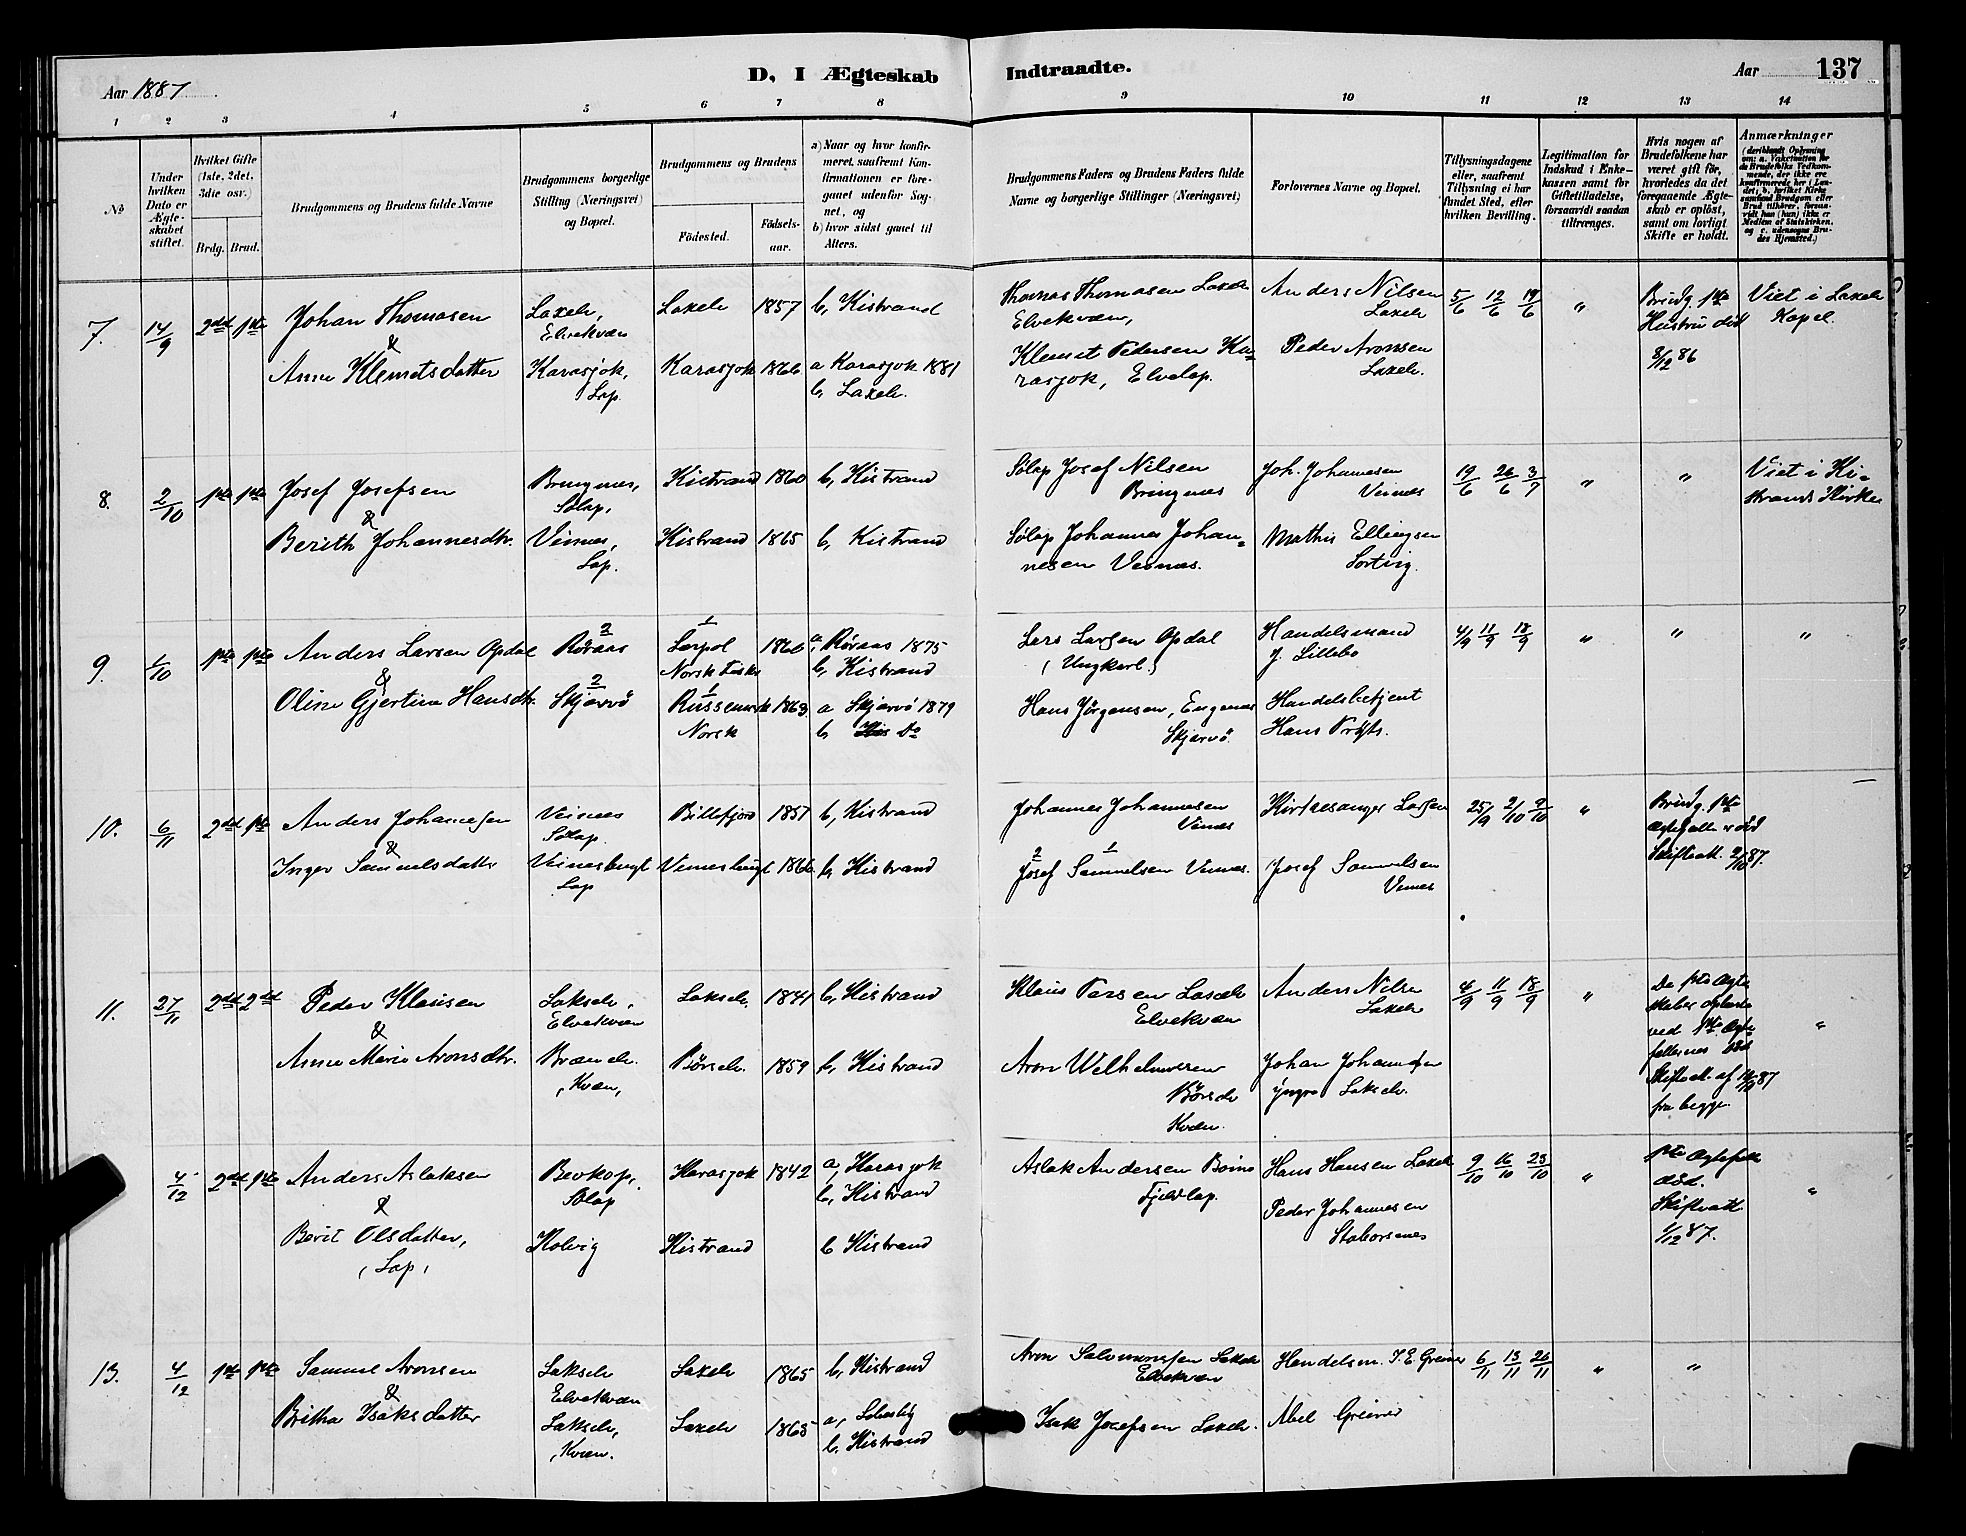 Aar 1887.
D, I Ægteskab
Indtraadte.
Aar
137
1
2
3
4
5
6
7
8
9
10
11
12
13
14
No
Under hvilken Dato er Ægteskabet stiftet.
Hvilket Gifte (1ste, 2det, 3die osv.)
Brdg.
Brud.
Brudgommens og Brudens fulde Navne
Brudgommens borgerlige Stilling (Næringsvei) og Bopæl.
Brudgommens og Brudens
Födested.
Födsels-aar.
a) Naar og hvor konfirmeret, saafremt Konfirmationen er foregaaet udenfor Sognet, og
b) hvor sidst gaaet til Alters.
Brudgommens Faders og Brudens Faders fulde Navne og borgerlige Stillinger (Næringsvei)
Forlovernes Navne og Bopæl.
Tillysningsdagene eller, saafremt Tillysning ei har fundet Sted, efter hvilken Bevilling.
Legitimation for Indskud i Enkekassen samt for Giftetilladelse, forsaavidt saadan tiltrænges.
Hvis nogen af Brudefolkene har været gift för, hvorledes da det foregaaende Ægteskab er oplöst, samt om lovligt Skifte er holdt.
Anmærkninger
7. 14/9 2det 1ste Johan Thomasen Laxelv, Elvekvæn Laxelv 1857 b, Kistrand
&
Anne Klemetsdatter Karasjok, Lap. Karasjok 1866 a Karasjok 1881 b, Laxelv.
Thomas Thomasen Laxelv Elvekvæn, Anders Nilsen Laxelv 5/6 12/6 19/6 " Brudg. 1ste Hustru död 8/12 86 Viet i Laxelv Kapel
Klemet Pedersen Karasjok, Elvelap. Peder Aronsen Laxelv.
8. 2/10 1ste 1ste Josef Josefsen Bringnes, Sølap, Kistrand 1860 b, Kistrand
&
Berith Johannesdtr. Veines, Lap. Kistrand 1865 b, Kistrand
Sølap Josef Nilsen Bringnes Joh. Johannesen Veines 19/6 26/6 3/7 " " Viet i Kistrands Kirke
Sølap Johannes Johannesen Veines. Mathis Ellingsen Sorting.
9. 1/10 1ste 1ste Anders Larsen Opdal 2 Røraas 1 1860 a, Røraas 1875 b, Kistrand
&
Oline Gjertine Hansdtr. 2 Skjærvö 1 1863 Norsk a Skjærvö 1879 b, Do
Lars Larsen Opdal (Ungkarl) Handelsmand J. Lillebo 4/9 11/9 18/9 " " "
Hans Jörgensen, Engenæs Skjærvö. Handelsbetjent Hans
10. 6/11 2det 1ste Anders Johannesen Veines Sølap. Billefjord 1857 b, Kistrand
&
Inger Samuelsdatter Veinesbugt Lap Veinesbugt 1866 b, Kistrand
Johannes Johannesen Veines Kirkesanger Larsen 25/9 2/10 9/10 " Brudg. 1ste Ægtefælle död Skifteatt. 2/10 87.
2 1
Josef Samuelsen Veines. Josef Samuelsen Veines
11. 27/11 2det 2det Peder Klausen Lakselv, Elvekvæn Lakselv. 1841 b, Kistrand
&
Anne Marie Aronsdtr. Brænelv. Kvæn, Børselv. 1859 b, Kistrand
Klaus Persen Laxelv Elvekvæn Anders Nilsen Laxelv 4/9 11/9 18/9 " De 1ste Ægteskaber opløste ved 1ste Ægtefællernes död Skifteatt. af 87 fra begge. "
Aron Wilhelmsen Børselv Kvæn. Johan Johannesen yngre Lakselv.
4/12 2det 1ste Anders Aslaksen Bevkop, Sølap Karasjok 1842 a, Karasjok b, Kistrand
&
Berit Olsdatter, (Lap, Kolvig Kistrand b Kistrand
Aslak Andersen Boino Fjeldlap. Hans Hansen Laxelv 9/10 16/10 23/10 " 1ste Ægtefælle död. Skifteatt 1/12 87. "
Peder Johannesen Staborsnes
13. 4/12 1ste 1ste Samuel Aronsen Lakselv Elvekvæn Laxelv 1865 b, Kistrand
&
Britha Isaksdatter Lakselv, Kvæn. Laxelv 1865 a, b, Kistrand
Aron Salomonsen Lakselv Elvekvæn Handelsm. I. E. Greiner 6/11 13/11 20/11 " "
Isak Josefsen Laxelv. Abel Greiner